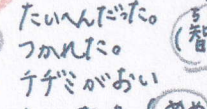 たいへんだった。
つかれた。
テヂミがおい